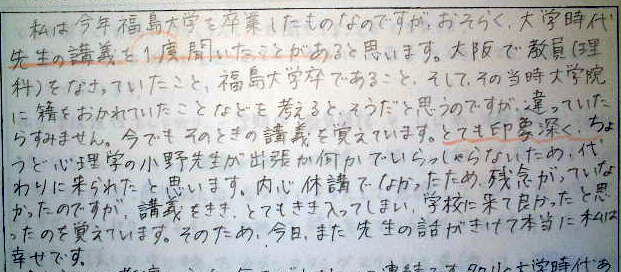 私は今年福島大学を卒業したものなのですが、おそらく、大学時代
先生の講義を1度聞いたことがあると思います。大阪で教員(理
科)をなさっていたこと、福島大学卒であること、そして、その当時大学院
に籍をおかれていたことなどを考えると、そうだと思うのですが、違っていた
らすみません。今でもそのときの講義を覚えています。とても印象深く、ちょ
うど心理学の小野先生が出張か何かでいらっしゃらないため、代
わりに来られたと思います。内心休講でなかったため、残念がっていな
かったのですが、講義をきき、とてもきき入ってしまい、学校に来て良かったと思
ったのを覚えています。そのため、今日、また先生の話がきけて本当に私は
幸せです。